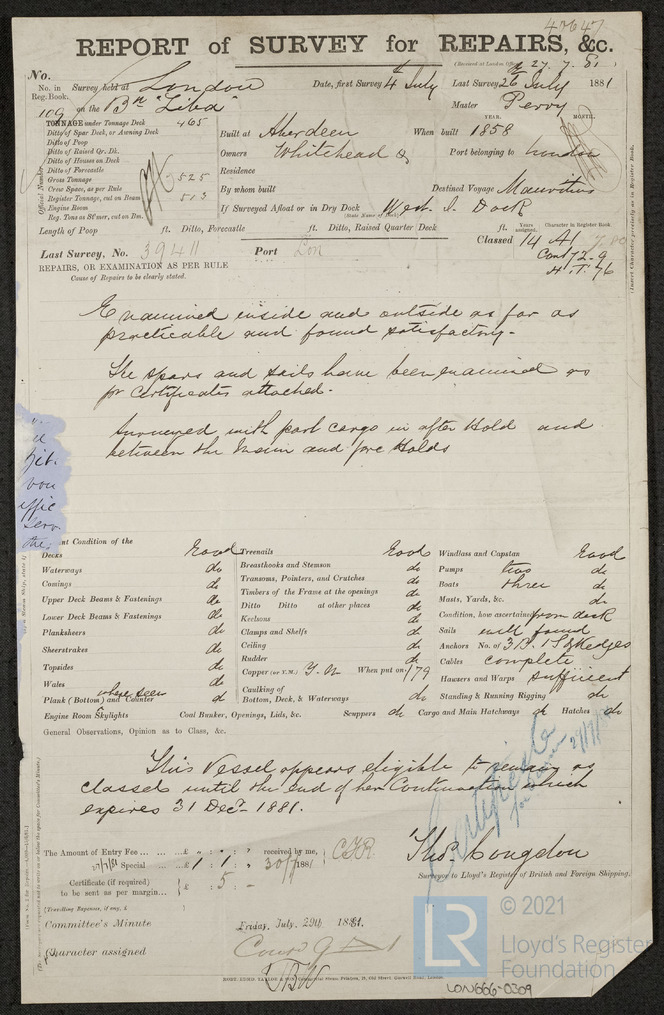 47647
REPORT of SURVEY for REPAIRS, &c.
(Received at London Office 27. 7. 81)
No.
No. in Reg. Book. Survey held at London Date, first Survey 4th July Last Survey 26 July 1881
109 on the Bn "Liba" Master Perry
TONNAGE under Tonnage Deck 465
Ditto of Spar Deck, or Awning Deck
Ditto of Poop
Ditto of Raised Qr. Dk.
Ditto of Houses on Deck
Ditto of Forecastle
Gross Tonnage 525
Crew Space, as per Rule
Register Tonnage, cut on Beam 513
Engine Room
Reg. Tons as St'mer, cut on Bm.
Official Number
YEAR. MONTH.
Built at Aberdeen When built 1858
Owners Whitehead & Port belonging to London
Residence
By whom built Destined Voyage Mauritius
If Surveyed Afloat or in Dry Dock West I. Dock
(State Name of Dock)
Length of Poop ft. Ditto, Forecastle ft. Ditto, Raised Quarter Deck ft.
Years assigned. Character in Register Book.
Classed 14 A1
Cont 72-9
H.T. 76
(Insert Character precisely as in Register Book.
Last Survey, No. 39411 Port Lon
REPAIRS, OR EXAMINATION AS PER RULE
Cause of Repairs to be clearly stated.
Examined inside and outside as far as
practicable and found satisfactory.
The spars and sails have been examined as
pr Certificates attached.
Surveyed with part cargo in after Hold and
between the Main and fore Holds
Condition of the
Decks Good
Waterways do
Comings do
Upper Deck Beams & Fastenings do
Lower Deck Beams & Fastenings do
Planksheers do
Sheerstrakes do
Topsides do
Wales do
where seen
Plank (Bottom) and Counter do
Engine Room Skylights Coal Bunker, Openings, Lids, &c. Scuppers do Cargo and Main Hatchways do Hatches do
Treenails Good
Breasthooks and Stemson do
Transoms, Pointers, and Crutches do
Timbers of the Frame at the openings do
Ditto Ditto at other places do
Keelsons do
Clamps and Shelfs do
Ceiling do
Rudder do
Copper (or Y.M.) Y.M. When put on /79
Caulking of Bottom, Deck, & Waterways do
Windlass and Capstan Good
Pumps two do
Boats three do
Masts, Yards, &c. do
Condition, how ascertained from deck
Sails well found
Anchors No. of 3B. 1S & Kedges
Cables complete
Hawsers and Warps sufficient
Standing & Running Rigging do
General Observations, Opinion as to Class, &c.
This Vessel appears eligible to remain as
classed until the end of her Continuation which
expires 31 Dec. 1881.
Certificate
The Amount of Entry Fee ... £ " : " : " received by me,
Special ... £ 1 : 1 : 30/7 1881
Certificate (if required) to be sent as per margin... £ " : 5 : -
(Travelling Expenses, if any, £
Thos. Congdon
Surveyor to Lloyd's Register of British and Foreign Shipping.
Committee's Minute Friday, July, 29th 1881.
Character assigned
© 2021
LR
Lloyd's Register
Foundation
LON666-0309